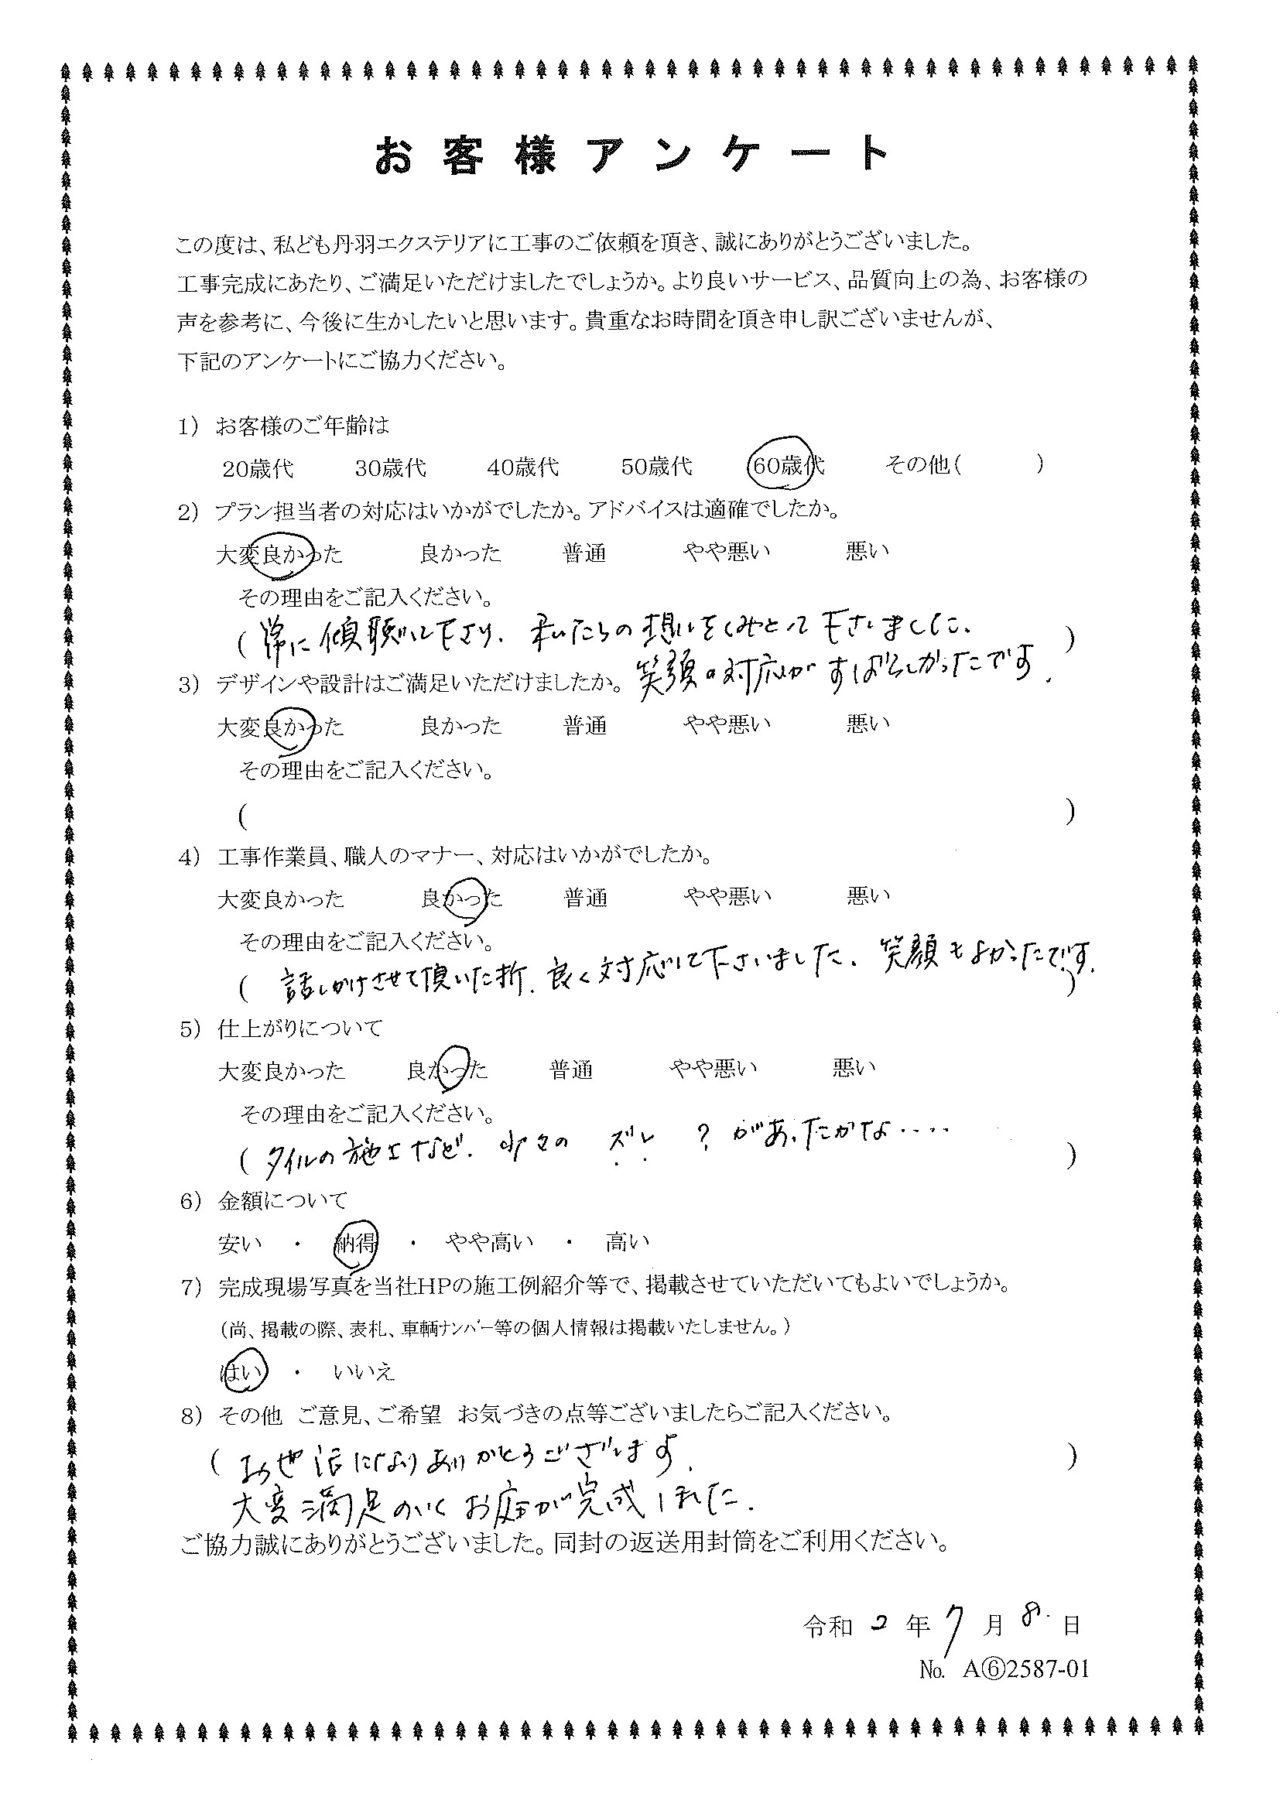 お客様アンケート
この度は、私ども丹羽エクステリアに工事のご依頼を頂き、誠にありがとうございました。
工事完成にあたり、ご満足いただけましたでしょうか。より良いサービス、品質向上の為、お客様の
声を参考に、今後に生かしたいと思います。貴重なお時間を頂き申し訳ございませんが、
下記のアンケートにご協力ください。
1) お客様のご年齢は
20歳代 30歳代 40歳代 50歳代 60歳代 その他( )
2) プラン担当者の対応はいかがでしたか。アドバイスは適確でしたか。
大変良かった 良かった 普通 やや悪い 悪い
その理由をご記入ください。
( 常に傾聴して下さり、私たちの想いをくみとって下さいました、 )
笑顔の対応がすばらしかったです.
3) デザインや設計はご満足いただけましたか。
大変良かった 良かった 普通 やや悪い 悪い
その理由をご記入ください。
( )
4) 工事作業員、職人のマナー、対応はいかがでしたか。
大変良かった 良かった 普通 やや悪い 悪い
その理由をご記入ください。
( 話しかけさせて頂いた折、良く対応して下さいました、笑顔もよかったです. )
5) 仕上がりについて
大変良かった 良かった 普通 やや悪い 悪い
その理由をご記入ください。
( タイルの施工など、少々のズレ?があったかな.... )
6) 金額について
安い ・ 納得 ・ やや高い ・ 高い
7) 完成現場写真を当社HPの施工例紹介等で、掲載させていただいてもよいでしょうか。
(尚、掲載の際、表札、車輌ﾅﾝﾊﾞｰ等の個人情報は掲載いたしません。)
はい ・ いいえ
8) その他 ご意見、ご希望 お気づきの点等ございましたらご記入ください。
( お世話になりありがとうございます. )
大変満足のいくお庭が完成しました.
ご協力誠にありがとうございました。同封の返送用封筒をご利用ください。
令和 2 年 7 月 8 日
№ A⑥2587-01